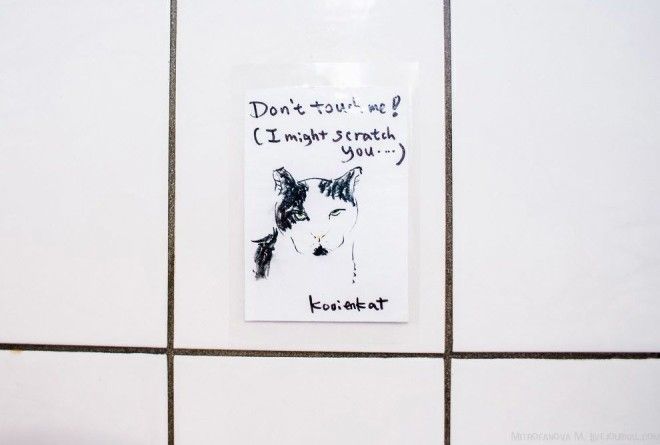 Don't touch me!
(I might scratch
you....)
kooienkat
MITROFANOVA M. LIVEJOURNAL.COM